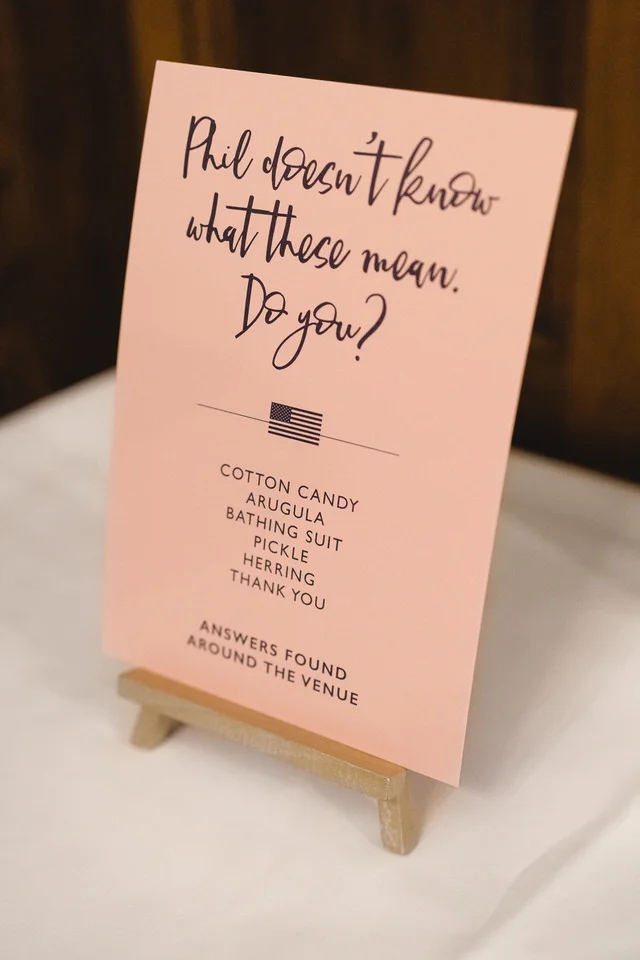 Phil doesn't know
what these mean.
Do you?
COTTON CANDY
ARUGULA
BATHING SUIT
PICKLE
HERRING
THANK YOU
ANSWERS FOUND
AROUND THE VENUE